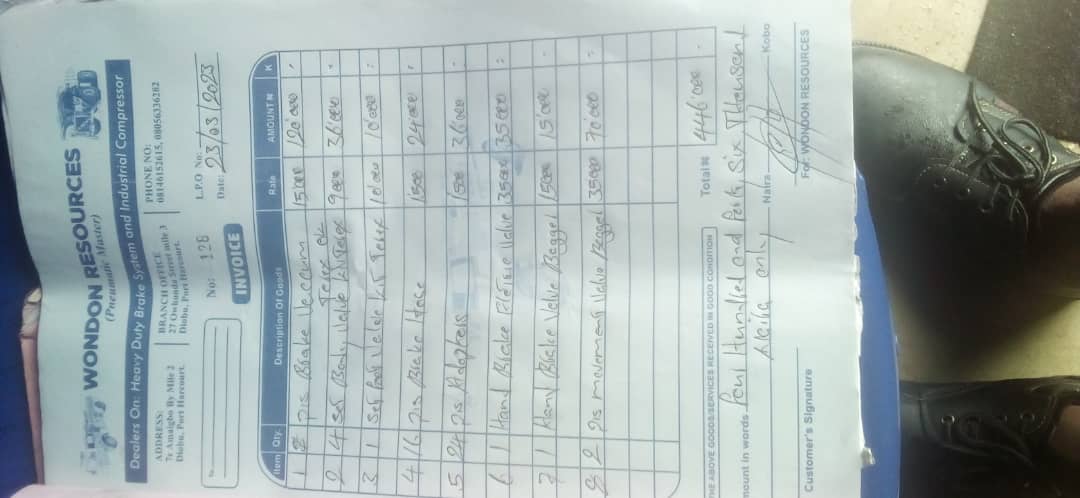 WONDON RESOURCES
(Pneumatic Master)
Dealers On: Heavy Duty Brake System and Industrial Compressor
ADDRESS:
Mile 2
Diobu, Port Harcourt.
BRANCH OFFICE
27 Owhonda Street mile 3
Diobu, Port Harcourt.
PHONE NO:
08146152615, 08056336282
No: 128
L.P.O No:
INVOICE
Date: 23/03/2023
Item Qty. Description Of Goods Rate AMOUNT ₦ K
1 8 Pis Brake 15'000 120'000 -
2 4 set Body Valve kit 9000 36'000 -
3 1 set foot Valve kit 10'000 10'000 -
4 16 Pis Brake Hose 1500 24'000 -
5 24 Pis Adapters 1500 36'000 -
6 1 Hand Brake Valve 35000 35'000 -
7 1 Hand Brake Valve 15000 15'000 -
8 2 Pis movement Valve 35000 70'000 -
THE ABOVE GOODS/SERVICES RECEIVED IN GOOD CONDITION
Total ₦ 446'000 -
Amount in words Four Hundred and Forty Six Thousand
Naira only Naira Kobo
Customer's Signature
For: WONDON RESOURCES